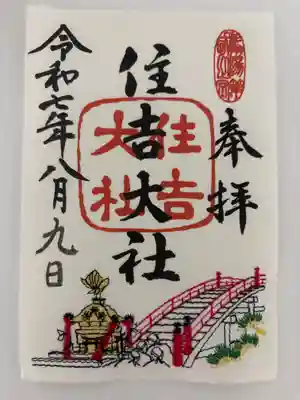 奉拝
住吉大社
住吉大社
令和七年八月九日